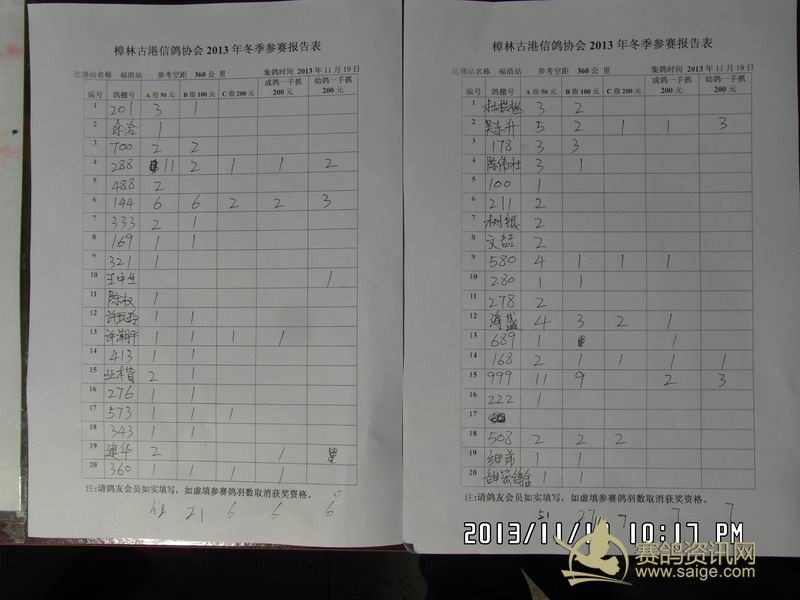 樟林古港信鸽协会 2013 年冬季参赛报告表
比赛站名称 福清站 参考空距 360公 里 集鸽时间 2013 年 11 月 19 日
编号 鸽棚号 A 指 50 元 B 指 100 元 C 指 200 元 成鸽一手抓 200 元 幼鸽一手抓 200 元
1 201 3 1
2 余浩 1
3 700 2 2
4 288 11 2 1 1 2
5 488 2
6 144 6 6 2 2 3
7 333 2 1
8 169 1 1
9 321 1
10 王中生 1
11 陈权 1
12 1 1
13 许潮平 1 1 1 1
14 413 1 1
15 2 1
16 276 1 1
17 573 1 1 1
18 343 1 1
19 建华 2 1
20 360 1 1 1 1
注:请鸽友会员如实填写，如虚填参赛鸽羽数取消获奖资格。
21 6 6 6
樟林古港信鸽协会 2013 年冬季参赛报告表
比赛站名称 福清站 参考空距 360公 里 集鸽时间 2013 年 11 月 19 日
编号 鸽棚号 A 指 50 元 B 指 100 元 C 指 200 元 成鸽一手抓 200 元 幼鸽一手抓 200 元
1 3 2
2 吴东升 5 2 1 1 3
3 178 3 3
4 陈伟壮 3 1
5 100 1
6 211 2
7 树银 2
8 文喆 2
9 580 4 1 1 1
10 280 1 1
11 278 2
12 海盛 4 3 2 1
13 689 1 1
14 168 2 1 1 1 1
15 999 11 9 2 3
16 222 1
17
18 508 2 2 2
19 细弟 1 1
20 1 1
注:请鸽友会员如实填写，如虚填参赛鸽羽数取消获奖资格。
51 27 7 7 7
2013/11/19 10:17 PM
赛鸽资讯网
www.saige.com